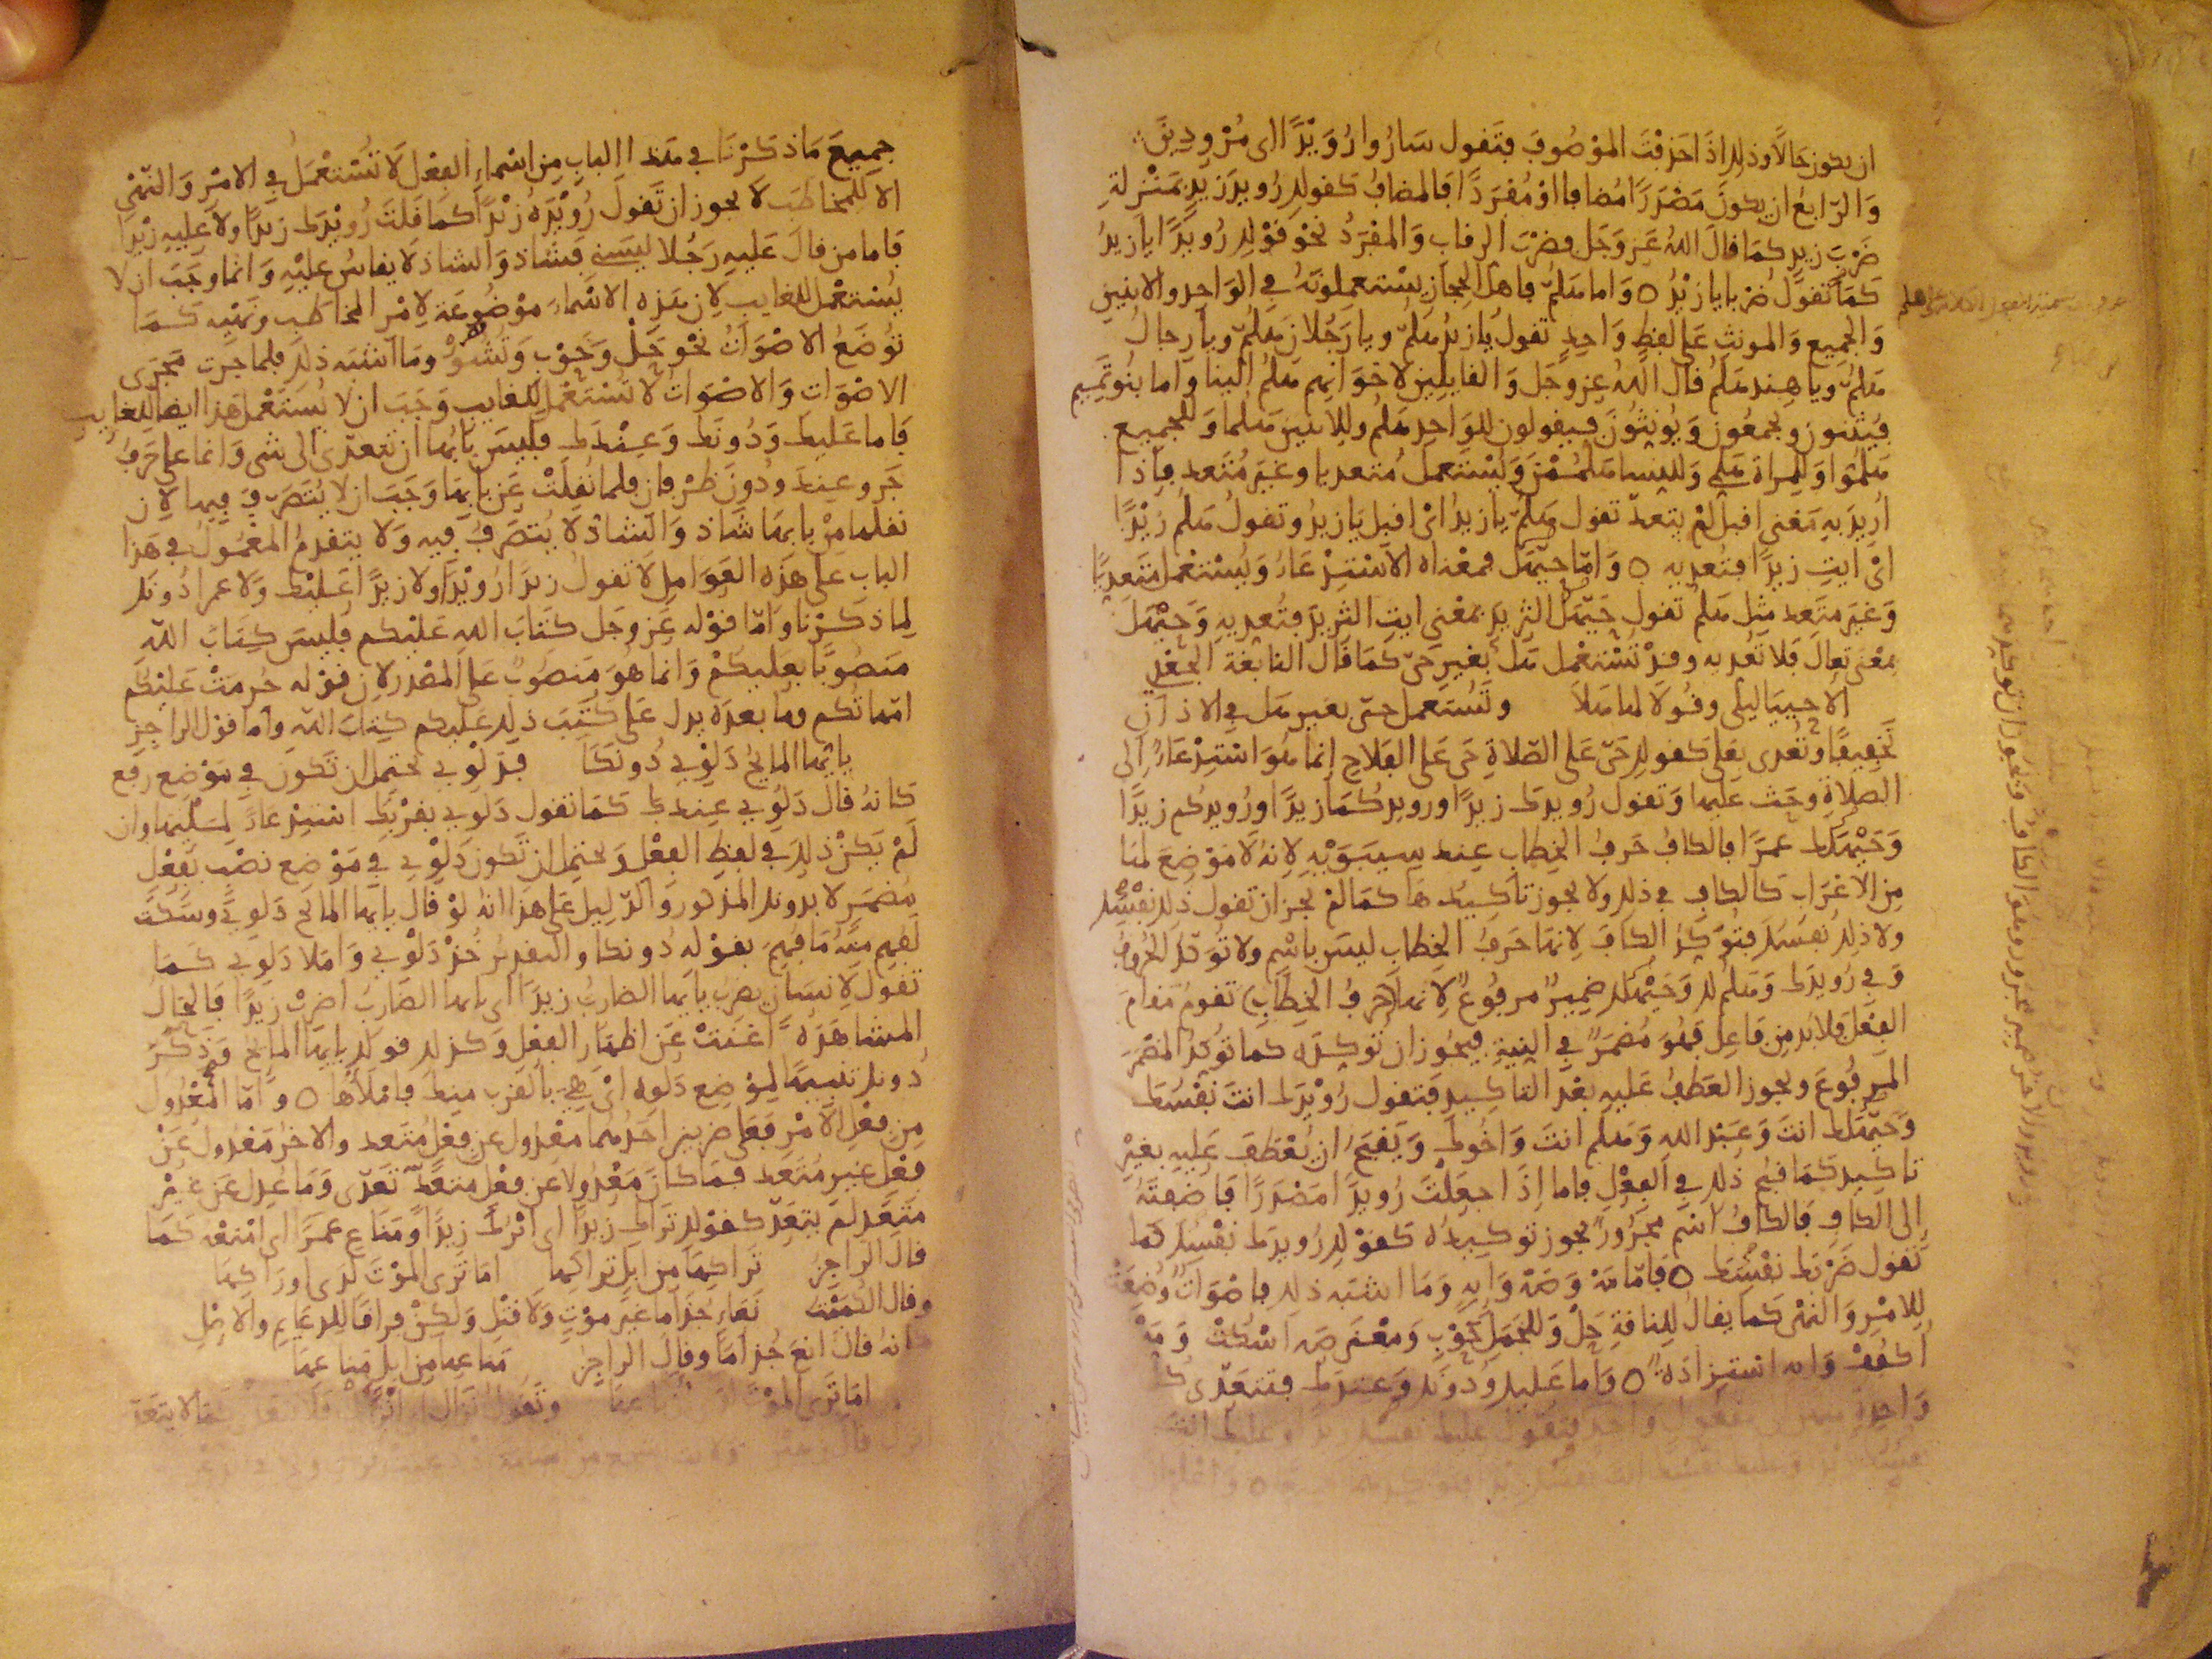 ان يكون حالا وذلك اذا حذفت الموصوف فتقول ساروا رُوَيْدًا اى مُرْوِدِينَ
وَالرّابعُ ان يكونَ مَصْدَرًا مُضافا اوْ مُفْرَدًا فالمضافُ كقولك رُويدَ زيدٍ بمَنْزلةِ
ضَرْبَ زيدٍ كمَا قالَ اللهُ عَزوَجَل فضرْبَ الرقاب وَالمفْرَدُ نحْوَ قوْلك رُوَيْدًا يا زيدُ
كمَا تقولُ ضرْبا يا زيْدُ ٥ وَاما هَلمُّ فاهلُ الحِجاز يسْتعمِلونَهُ في الوَاحِد والاثنين
وَالجميع والمونث عَلى لفظٍ وَاحِدٍ تقولُ يا زيدُ هَلمُّ ويا رَجُلان هَلمُّ ويا رجالُ
هَلمُّ ويا هِند هَلمُّ قالَ اللهُ عزوجَل وَالقايلين لاخوَانِهم هَلمُّ الينا وَاما بنُو تمِيم
فيُثنون ويجمعُون وَيُونِثُونَ فيقولون للوَاحِد هَلمُّ وللاثنين هَلمّا وَللجميع
هَلمُّوا وَللمراة هَلمّى وَللنسا هَلمُمْنَ وَيُسْتعمل مُتعديا وغيرَ مُتَعد فاذا
اُريدَ بهِ مَعْنى اقبل لمْ يتعدّ تقول هَلمُّ يا زيدُ اىْ اقبل يا زيدُ وتقولُ هَلمُّ زَيْدًا
اىْ ايتِ زيدًا فتُعديه ٥ وَامّا حيّهَل فمعْناه الاسْتِدْعَاءُ وَيُسْتعْمل مُتَعديًا
وَغَيْرَ متَعد مِثل هَلمُّ تقول حَيّهَلَ الثريدَ بمَعْنى ايتِ الثريدَ فتُعديهِ وَحَيّهَلَ
بمعْنى تعالَ فلا تُعديه وقدْ تُسْتعْمل هَلْ بغير حَيّ كمَا قال النابغة الجعْدي
الا حييَا ليلى وقُولا لها هَلا وتُسْتعمل حىّ بغير هل في الاذان
تخفيفًا وتُعدى بعَلى كقولك حَىّ عَلى الصّلاةِ حَى عَلى الفلاح انما هُوَ اسْتِدْعَاءٌ الى
الصلاةِ وحَث عليها وَتقول رُويدك زيدًا ورويدكُمَا زيدًا ورُويدكُم زيدًا
وَحَيّهَلك عمرًا فالكافُ حَرفُ الخِطاب عِند سِيبَوَيْهِ لانهُ لا مَوْضِعَ لها
مِن الاعْرَاب كالكاف في ذلك ولا يجوز تأكِيدُها كمَا لمْ يجز ان تقول ذلك نفسُك
ولا ذلك نفسَك فتُؤكّدُ الكافَ لانها حَرفُ الخِطاب ليسَ باسْم ولا تُوَكدُ الحُروفُ
وَفي رُويدك وَهَلمَّ لك وَحَيّهَلك ضمِيرٌ مرفُوعٌ لانها (حَرفُ الخِطابِ) تقومُ مقامَ
الفِعْل فلابد مِن فاعِل فهُوَ مُضمَرٌ في النيةِ فيجُوز ان تُؤكدَه كما تُؤكدُ المُضمَرَ
المرفُوعَ ويجوز العَطفُ عَليهِ بعْدَ التأكِيد فتقول رُوَيْدك انتَ نفسُك
وَحَيّهَلك انتَ وَعَبْد الله وَهَلم انتَ وَاخُوك وَيَقبحُ ان يُعْطفَ عَليهِ بغيْرِ
تأكِيد كمَا قبحَ ذلك في الفِعْلِ فاما اِذا جَعَلتَ رُويدًا مَصْدَرًا فاضفتَهُ
إلى الكافِ فالكافُ اسْم مجرُورٌ يجوز توكِيدُه كقوْلك رُويدك نفْسِك كما
تقول ضَرْبك نفْسِك ٥ فامّا مَهْ وَصَهْ وَايهٍ وَمَا اشبَهَ ذلك فاصْوَاتٌ وُضِعَتْ
لِلامْرِ وَالنهْى كمَا يقالُ للنّاقةِ حَلْ وَللجَمَل حَوْبِ وَمعْنى صَهْ اسْكتْ وَمَهْ
اُكففْ وَايه اسْتِزادَة ٥ وَاما عَليك ودُونك وَعِندك فتتعَدّى
جميعَ مَا ذكرْنا في هذا الباب مِن اسْماءِ الفِعْل لا تُسْتعْمَلُ في الامْرِ وَالنّهْي
الا للمُخاطَب لا يجوز ان تَقولَ رُوَيْدَهُ زيْدًا كمَا قلتَ رُويْدك زيدًا ولا عَليهِ زيْدًا
فاما مَن قالَ عَليهِ رَجُلا ليسَني فشاذ وَالشاذ لا يقاسُ عليْهِ وَانما وجَبَ ان لا
يُسْتعْمل للغايب لان هَذِه الاسْماءَ موْضُوعَة لامْر المخاطب ونَهْيه كمَا
تُوضَعُ الاصْوَاتُ نحْوَ حَلْ وَحَوْبِ وَتُشُؤْ وما اشبَه ذلك فلما جَرَت مَجرَى
الاصْوَات وَالاصْوَاتُ لا تُسْتَعْمَلُ للغايب وَجَبَ ان لا يُسْتَعْمل هَذا ايضا للغايب
فاما عَليك وَدُونَك وَعِنْدَك فليسَ بابُها ان تتعدّى الى شى وَانما على حَرفُ
جَر وعِندَ ودُونَ ظرْفان فلما نُقِلتْ عَن بابها وَجَبَ ان لا يُتَصرَّفَ فيها لان
نقلها مِنْ بابهَا شاذ وَالشاذ لا يُتَصَرَّفُ فيه وَلا يتقدمُ المعْمُولُ في هَذا
الباب على هَذِه العَوَامِل لا تقولُ زيدَا رُوَيْدَا ولا زيدًا عَليْك وَلا عمرا دُونَك
لِما ذكَرْنا وَامّا قوْله عَزوجَل كتابَ الله عَليْكم فليسَ كِتابَ اللّه
مَنصُوبًا بعَليكُمْ وَانما هُوَ مَنصُوبٌ عَلى المَصْدَر لان قوْله حُرمَتْ عَليْكم
امّهاتُكم وما بعْدَه يدل عَلى كَتَبَ ذلك عَليكم كِتابَ اللّه واما قوْل الراجز
يايها المايحُ دَلوْي دُونكا فدَلوْي يحتمل ان تَكونَ في مَوْضع رَفع
كانهُ قال دَلوْي عِندك كمَا تقول دَلوْي بقرْبك اسْتِدْعَاءً لمَسْليها وان
لَمْ يَكنْ ذلك في لفظِ الفِعْلِ وَيحتمل ان تَكون دَلوْي في مَوْضِع نصْب بفِعْل
مُضمَر لا بدونك المذكور وَالدّليل عَلى هَذا انهُ لوْ قال يايها المايح دَلوْي وسَكتَ
لفهم مِنْهُ مَا فهمَ بقوْله دُونكا والتقديرُ خُذ دَلوْي وَاملا دَلوْي كمَا
تقول لانسَان يضربُ يايها الضاربُ زيدَا اى يايها الضاربُ اضربْ زيدًا فالحَالُ
المشاهَدَة اغنتْ عَن اظهار الفِعْل وَكذلك قولك يايها المايح فذكَرَ
دُونك تنبيهًا لمَوْضِع دَلوه اىْ هِىَ بالقرب مِنك فامْلأها ٥ وَامّا المعْدُول
مِن فِعْل الامْر فعَلى ضربين احَدُهما معْدُول عن فِعْل مُتَعد والاخرُ مَعْدُولٌ عَن
فِعْل غيْر مُتَعد فمَا كانَ مَعْدُولا عَن فِعْل متعدٍّ تعَدّى وَمَا عُدِلَ عَن غيْر
مُتَعد لمْ يتعَدّ كقوْلك تَرَاكِ زيدًا اى اتْرك زيدًا وَمَناع عَمرًا اى امْنَعْه كمَا
قال الراجزُ تَراكِها مِن ابل تراكِها امَا تَرى الموْتَ لَدى اورَاكِهَا
وقال الكُمَيْتُ نَعَاءِ جُذامًا غيْرَ مَوْتٍ وَلا قتْل وَلكِنْ فِراقا للدعايم والاصْل
كانه قال انعَ جُذامًا وقال الراجزُ مَناعِها مِن ابل مَناعِها
امَا تَرَى الموْتَ وتقُولُ نَزالِ